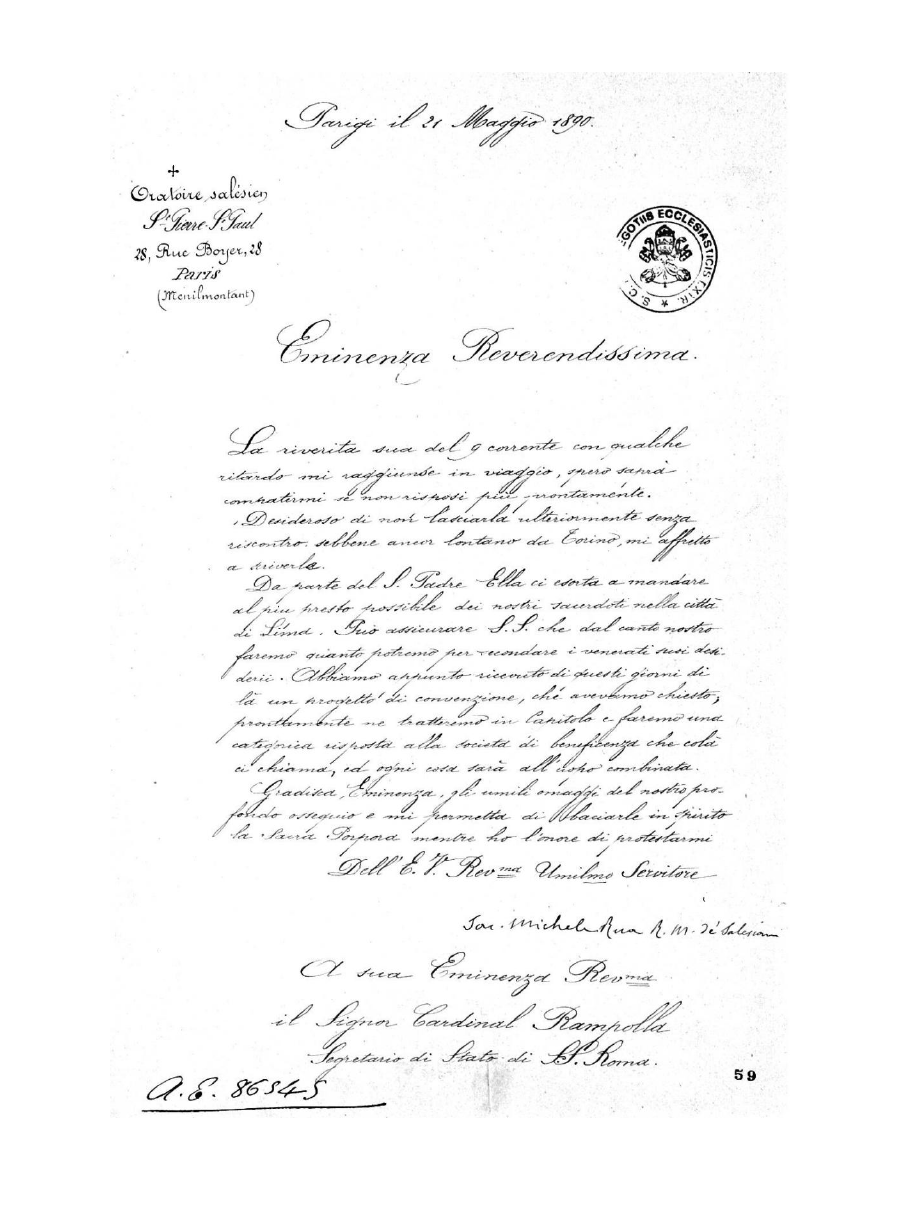 Parigi il 21 Maggio 1890.
+
Oratoire salésien
St Pierre-St Paul
28, Rue Boyer, 28
Paris
(Menilmontant)
GOTIIS ECCLESIASTICIS EXTR. * S. C.
Eminenza Reverendissima.
La riverita sua del 9 corrente con qualche
ritardo mi raggiunse in viaggio, spero saprà
compatirmi se non risposi più prontamente.
Desideroso di non lasciarla ulteriormente senza
riscontro sebbene ancor lontano da Torino, mi affretto
a scriverle.
Da parte del S. Padre Ella ci esorta a mandare
al più presto possibile dei nostri sacerdoti nella città
di Lima. Può assicurare S.S. che dal canto nostro
faremo quanto potremo per secondare i venerati suoi desi-
derii. Abbiamo appunto ricevuto di questi giorni di
là un progetto di convenzione, che avevamo chiesto,
prontamente ne tratteremo in Capitolo e faremo una
categorica risposta alla società di beneficenza che colà
ci chiama, ed ogni cosa sarà all'uopo combinata.
Gradisca, Eminenza, gli umili omaggi del nostro pro-
fondo ossequio e mi permetta di baciarle in ispirito
la Sacra Porpora mentre ho l'onore di protestarmi
Dell'E. V. Revma Umilmo Servitore
Sac. Michele Rua R. M. de' Salesiani
A sua Eminenza Revma
il Signor Cardinal Rampolla
Segretario di Stato di SS. Roma.
59
A.E. 86545